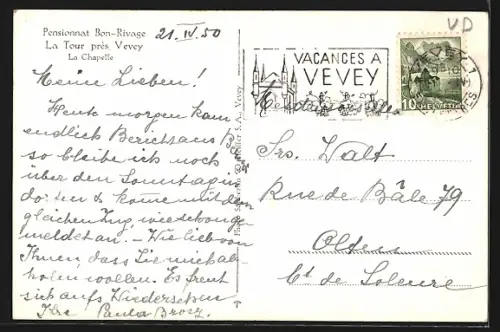 Pensionnat Bon-Rivage
La Tour près Vevey
La Chapelle
21. IV. 50
Meine Lieben!
Heute morgen kam
endlich Bericht aus
so bleibe ich noch
über den Sonntag in
dorten & komme mit dem
gleichen Zug, wie schon ge-
meldet an. – Wie lieb von
Ihnen, dass Sie mich ab-
holen wollen. Es freut
sich aufs Wiedersehen
Ihre Paula
VACANCES A
VEVEY
VEVEY 1
10 HELVETIA
VD
Walt
Rue de Bâle 79
Olten
Ct de Soleure